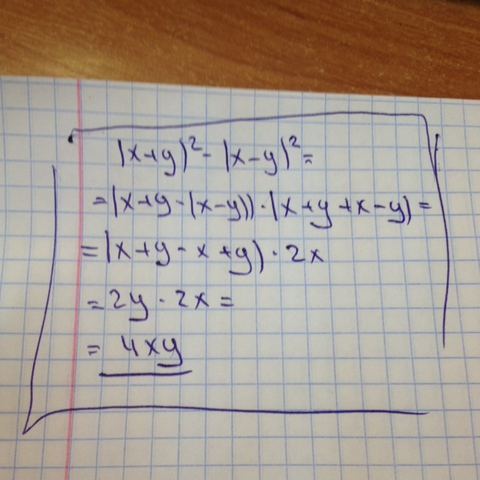 (x+y)²-(x-y)²=
=(x+y-(x-y))·(x+y+x-y)=
=(x+y-x+y)·2x
=2y·2x=
=4xy